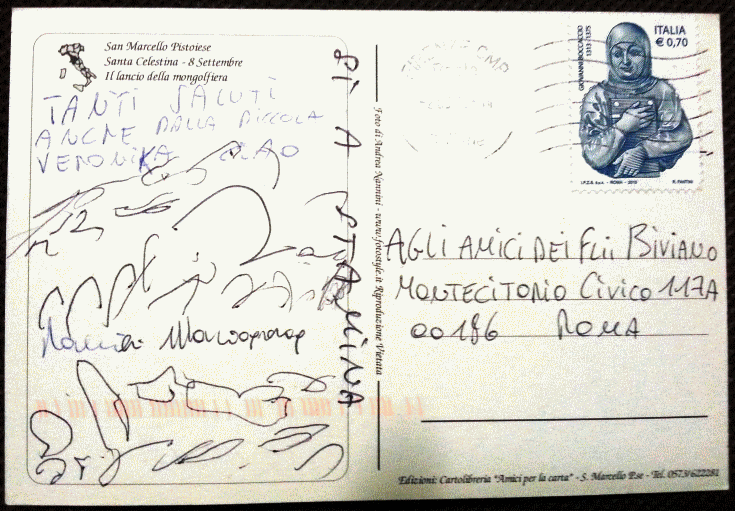 San Marcello Pistoiese
Santa Celestina - 8 Settembre
Il lancio della mongolfiera
TANTI SALUTI
ANCHE DALLA PICCOLA
VERONIKA CIAO
SI A STAMINA
Foto di Andrea Nannini - www.fotostyle.it Riproduzione Vietata
GIOVANNI BOCCACCIO
1313-1375
ITALIA
€ 0,70
I.P.Z.S. S.p.A. - ROMA - 2013
R. FANTINI
AGLI AMICI DEI Flli BIVIANO
MONTECITORIO CIVICO 117A
00186 ROMA
Edizioni: Cartolibreria "Amici per la carta" - S. Marcello P.se - Tel. 0573/622281